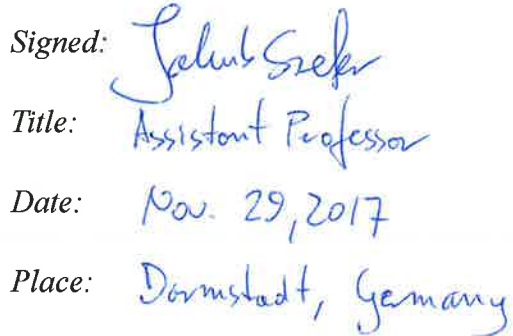 Signed: Jakub Szefer
Title: Assistant Professor
Date: Nov. 29, 2017
Place: Darmstadt, Germany